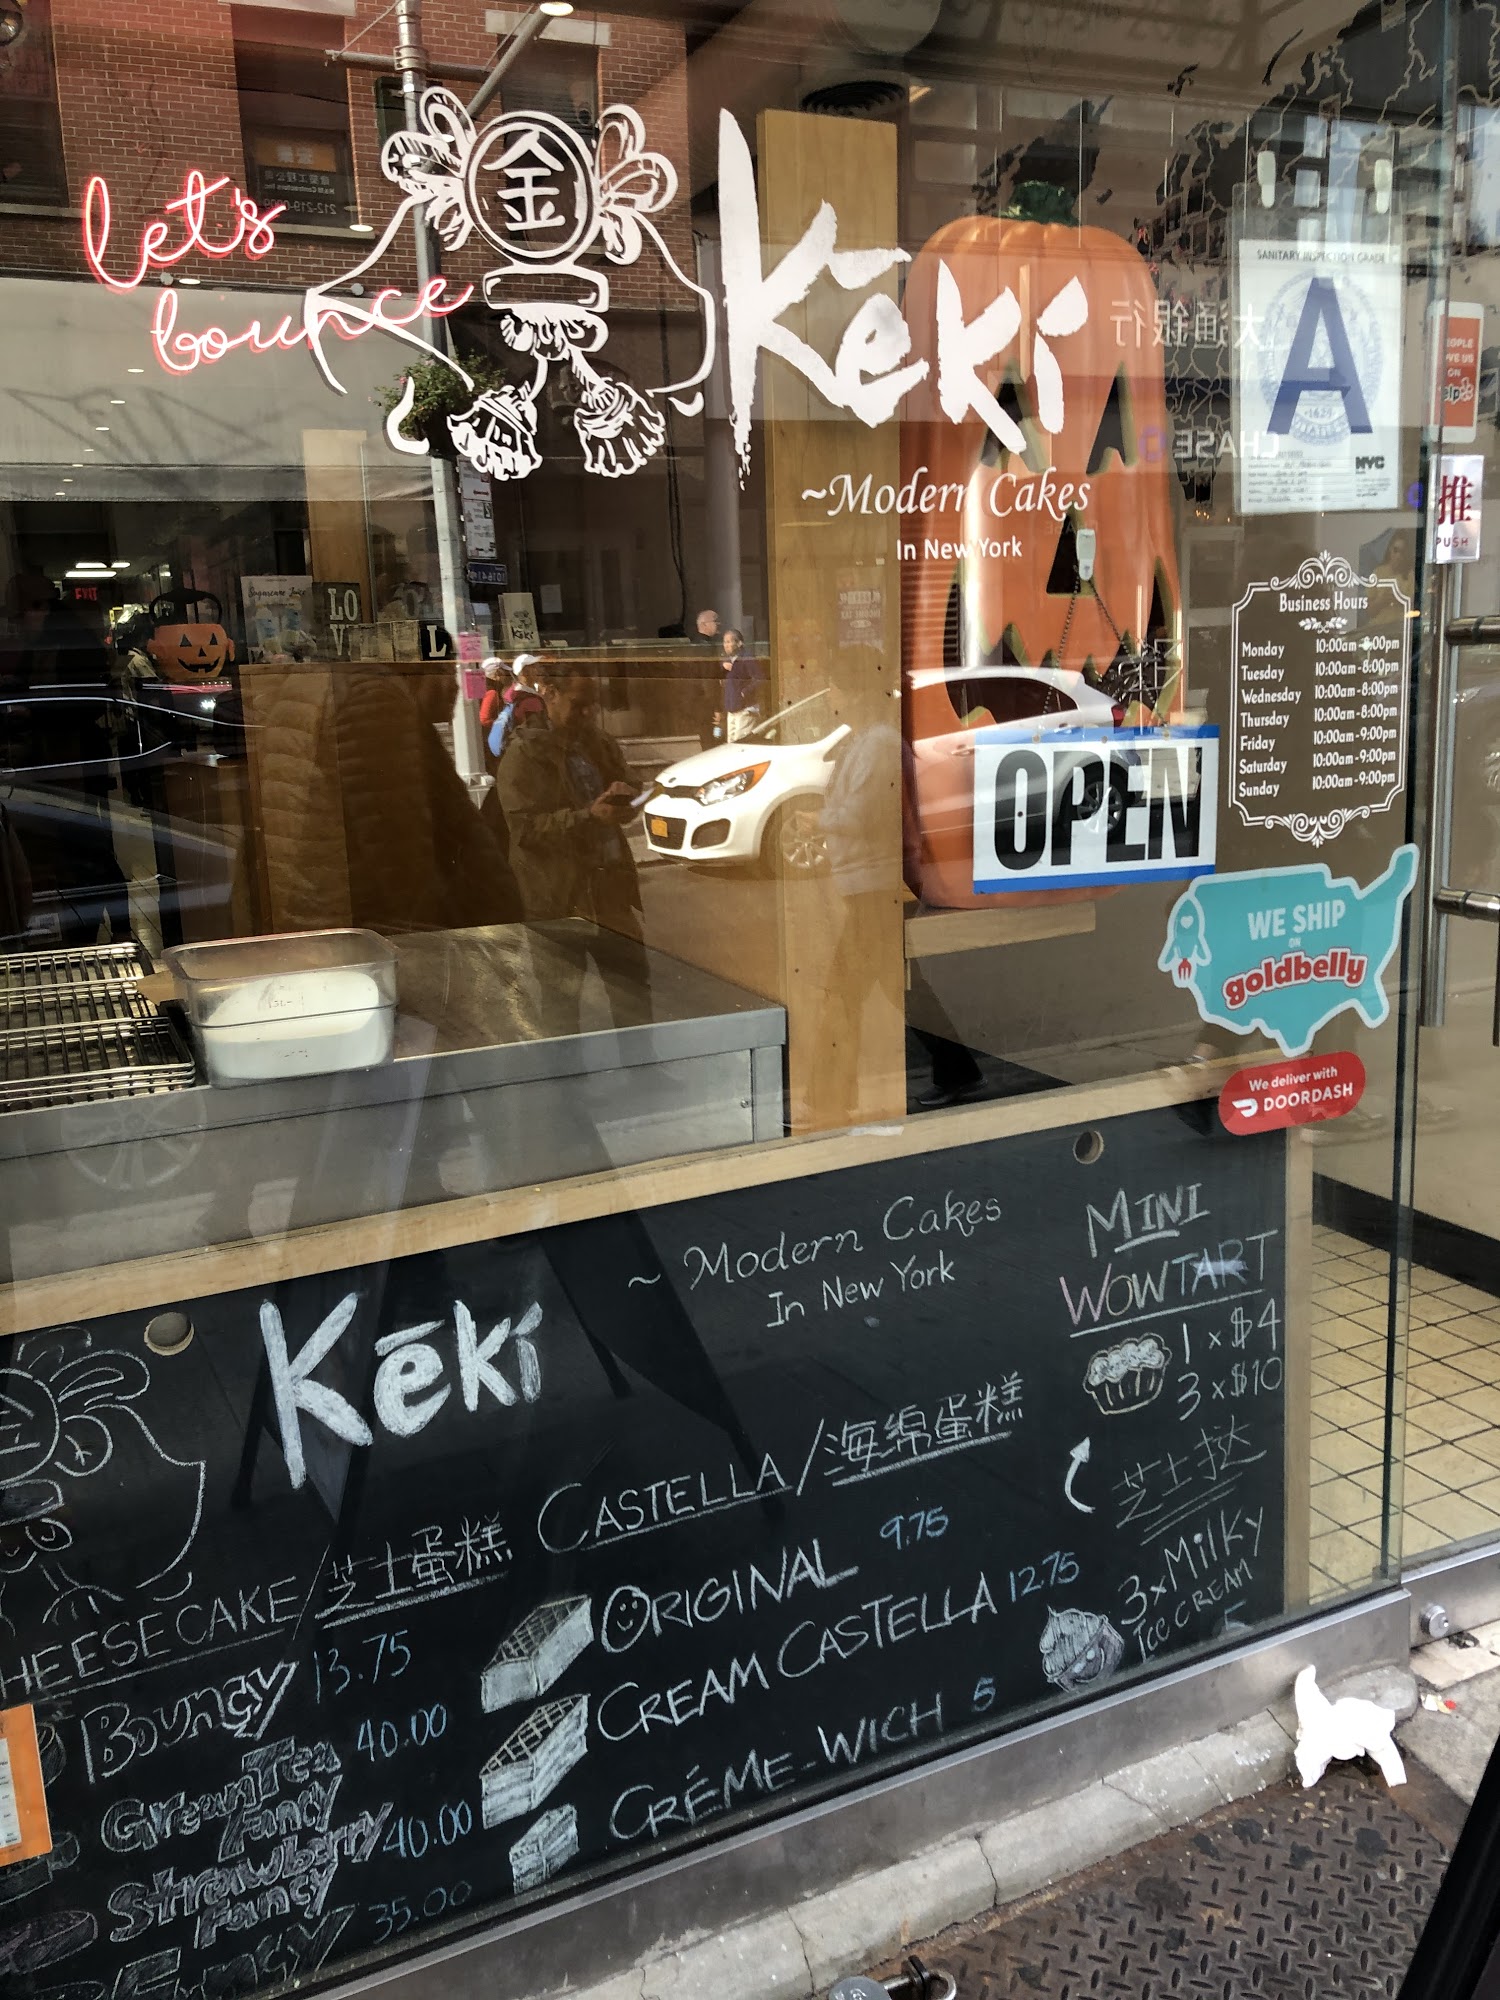 let's
bounce
金
Kēki
~Modern Cakes
In New York
SANITARY INSPECTION GRADE
A
NYC
大通銀行
CHASE
212-219-0909
推
PUSH
Business Hours
Monday 10:00am-8:00pm
Tuesday 10:00am-8:00pm
Wednesday 10:00am-8:00pm
Thursday 10:00am-8:00pm
Friday 10:00am-9:00pm
Saturday 10:00am-9:00pm
Sunday 10:00am-9:00pm
EXIT
Sugarcane Juice
LO
V
L
Kēki
OPEN
WE SHIP
ON
goldbelly
We deliver with
DOORDASH
Kēki
~ Modern Cakes
In New York
HEESECAKE/芝士蛋糕
Bouncy 13.75
Green Tea
Fancy 40.00
Strawberry
Fancy 40.00
Fancy 35.00
CASTELLA/海綿蛋糕
ORIGINAL 9.75
CREAM CASTELLA 12.75
CRÉME-WICH 5
MINI
WOWTART
1 x $4
3 x $10
芝士撻
3 x Milky
Ice CREAM
5